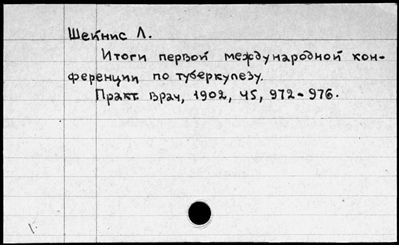 Шейнис Л.
Итоги первой международной кон-
ференции по туберкулезу.
Практ. Врач, 1902, 45, 972-976.